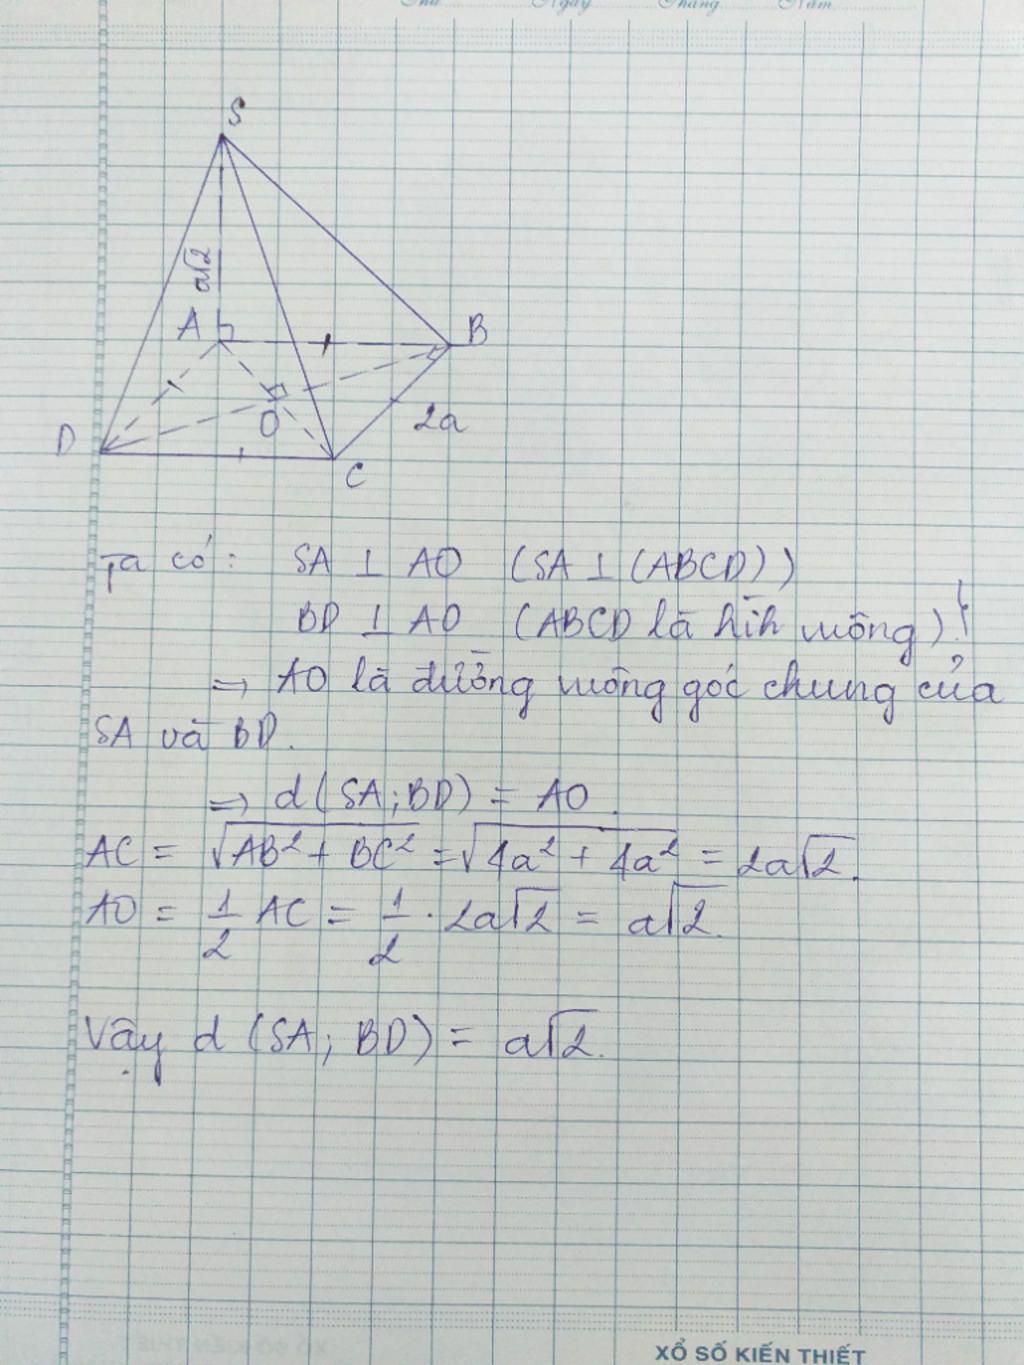 Thứ Ngày Tháng Năm
S
a√2
A
B
D
O
2a
C
Ta có: SA ⊥ AO (SA ⊥ (ABCD))
BD ⊥ AO (ABCD là hìh vuông)
⇒ AO là đường vuông góc chung của
SA và BD.
⇒ d(SA;BD) = AO.
AC = √(AB² + BC²) = √(4a² + 4a²) = 2a√2.
AO = 1/2 AC = 1/2 · 2a√2 = a√2.
Vậy d (SA; BD) = a√2.
XỔ SỐ KIẾN THIẾT